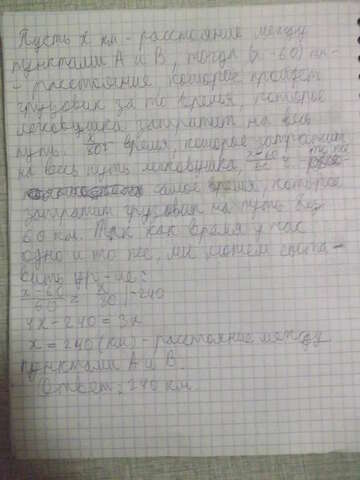 Пусть x км - расстояние между
пунктами А и В, тогда (x-60) км-
- расстояние которое пройдет
грузовик за то время, которое
легковушка затратит на весь
путь. x/80 ч время, которое затратит
на весь путь легковушка, x-60/60 ч -
самое время, которое
затратит грузовик на путь без
60 км. Так как время у нас
одно и то же, мы можем соста-
вить ур-ие:
x-60/60 = x/80 |·240
4x-240=3x
x=240(км) - расстояние между
пунктами А и В.
Ответ: 240 км.